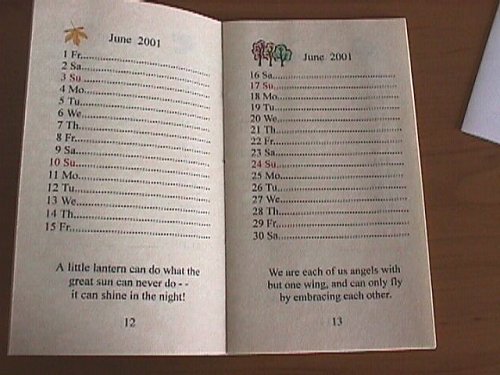 June 2001
1 Fr.......................................
2 Sa.......................................
3 Su.......................................
4 Mo.......................................
5 Tu.......................................
6 We.......................................
7 Th.......................................
8 Fr.......................................
9 Sa.......................................
10 Su.......................................
11 Mo.......................................
12 Tu.......................................
13 We.......................................
14 Th.......................................
15 Fr.......................................
A little lantern can do what the
great sun can never do - -
it can shine in the night!
12
June 2001
16 Sa.......................................
17 Su.......................................
18 Mo.......................................
19 Tu.......................................
20 We.......................................
21 Th.......................................
22 Fr.......................................
23 Sa.......................................
24 Su.......................................
25 Mo.......................................
26 Tu.......................................
27 We.......................................
28 Th.......................................
29 Fr.......................................
30 Sa.......................................
We are each of us angels with
but one wing, and can only fly
by embracing each other.
13